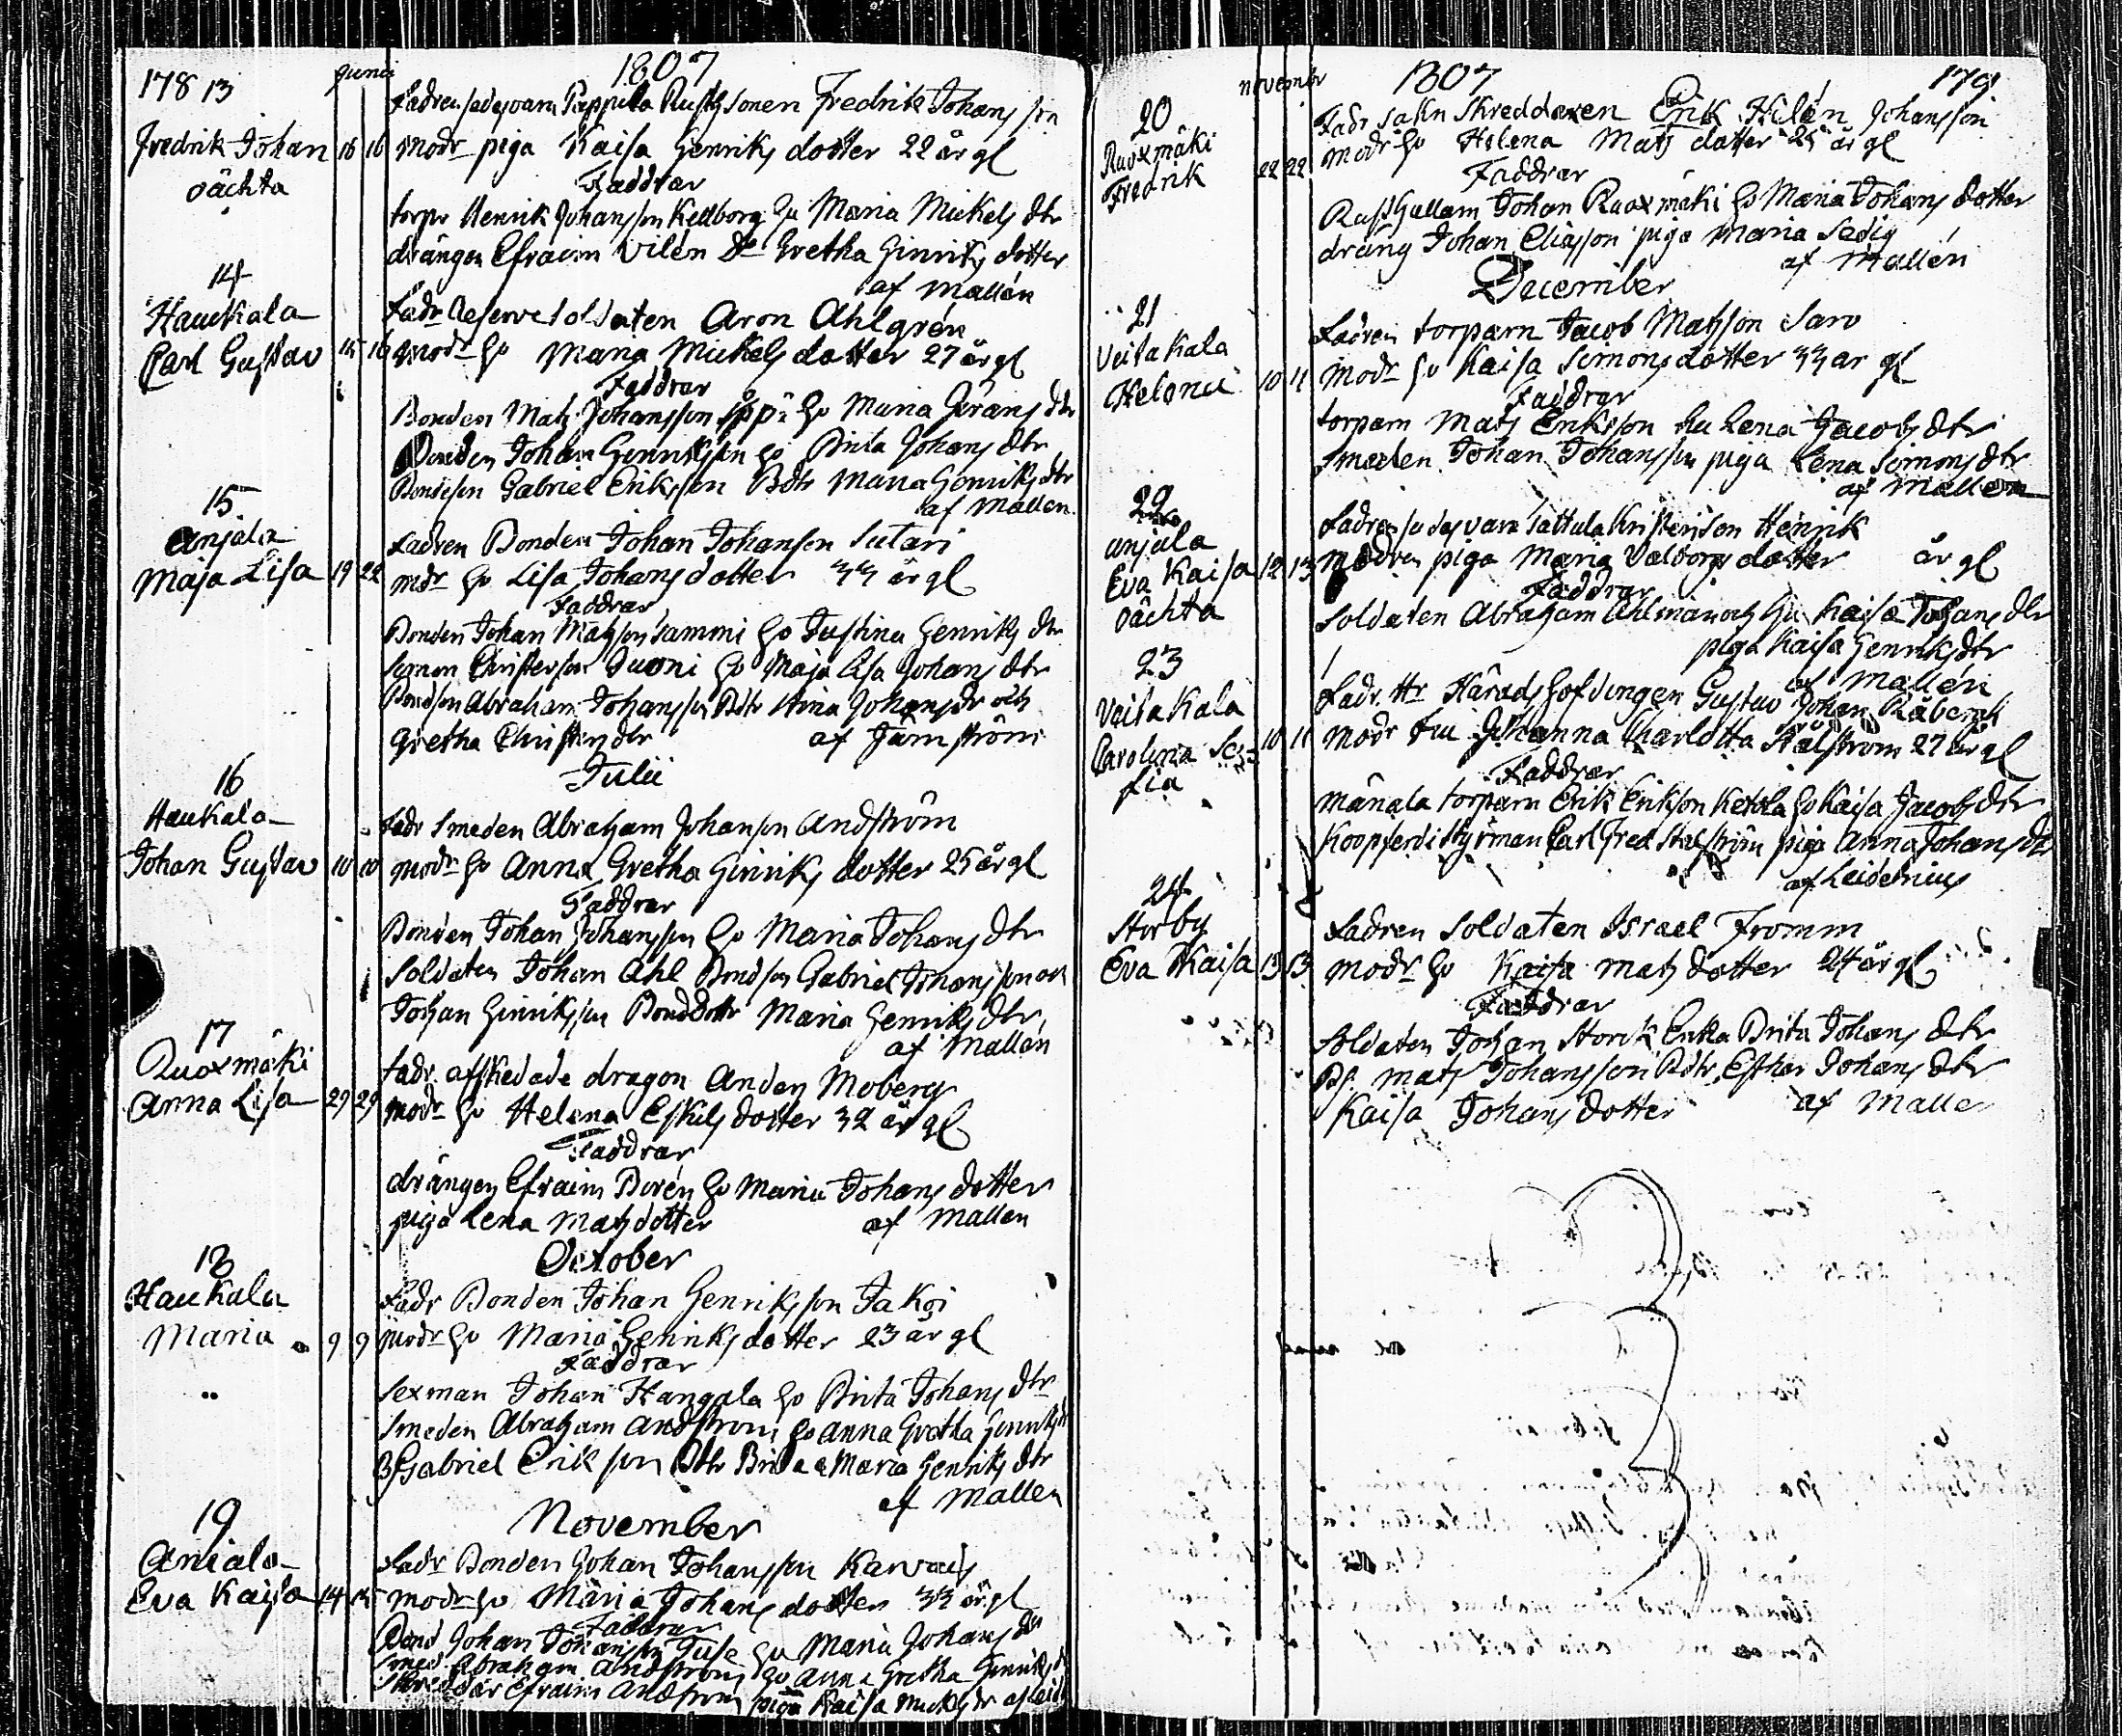 178 13 Junii 1807
Fadren sades vara Pappula Rusth sonen Fredrik Johans son
Fredrik Johan 16 16 Modr piga Kaisa Henriks dotter 22 år gl
oächta
Faddrar
torpr Henrik Johansson Kellborg hu Maria Mickels dtr
drängen Efraim Vilén Do Gretha Hinriks dotter
af Mallén
14
Haukala
Fadr Reserve Soldaten Aron Ahlgrén
Carl Gustav 15 16 Modr hu Maria Mickels dotter 27 år gl
Faddrar
Bonden Mats Johansson hu Maria Görans dtr
Bonden Johan Henriksson hu Brita Johans dtr
Bondeson Gabriel Eriksson Bdtr Maria Henriks dtr
af Mallen
15
Anjala
Fadren Bonden Johan Johanson Sutari
Maja Lisa 19 22 mdr hu Lisa Johans dotter 33 år gl
Faddrar
Bonden Johan Matsson Sammi hu Justina Henriks dtr
Simon Christersson Juoni hu Maja Lisa Johans dtr
Bondson Abraham Johansson Bdtr Stina Johans dr och
Gretha Christers dtr af Järnström
Julii
16
Haukala
Fadr Smeden Abraham Johanson Andström
Johan Gustav 10 10 modr hu Anna Gretha Hinriks dotter 25 år gl
Faddrar
Bonden Johan Johansson hu Maria Johans dtr
Soldaten Johan Ahl Bondson Gabriel Johansson och
Johan Hinriksson Bonddotr Maria Henriks dtr
af Mallén
17
Ruoxmäki
Fadr. afskedade dragon Anders Moberg
Anna Lisa 29 29 Modr hu Helena Eskils dotter 32 år gl
Faddrar
drängen Efraim Borén hu Maria Johans dotter
piga Lena Mats dotter af Mallen
October
18
Haukala
Fadr Bonden Johan Henriksson Jakoi
Maria 9 9 Modr hu Maria Henriks dotter 23 år gl
Faddrar
Sexman Johan Hangala hu Brita Johans dtr
Smeden Abraham Andström hu Anna Gretha Henriks dr
BS Gabriel Erikson Bdtr Brita & Maria Henriks dtr
af Mallen
November
19
Aniala
Fadr Bonden Johan Johansson Karvais
Eva Kaisa 14 15 modr hu Maria Johans dotter 33 år gl
Faddrar
Bond Johan Johansson Tuise hu Maria Johans dr
Smed Abraham Andström hu Anna Gretha Henriks d
Skreddar Efraim Andström piga Kaisa Mickels dr af Leid
November 1807 179
20
Ruoxmäki
Fadr sokn Skreddaren Erik Helén Johansson
Fredrik 22 22 modr hu Helena Mats dotter 25 år gl
Faddrar
Rusthållarn Johan Ruoxmäki hu Maria Johans dotter
dräng Johan Eliasson piga Maria Sedig
af Mallén
December
21
Veitakala
Fadren torparn Jacob Matsson Saro
Helena 10 11 Modr hu Kaisa Simons dotter 33 år gl
Faddrar
torparn Mats Eriksson hu Lena Jacobs dtr
Smeden Johan Johansson piga Lena Simons dtr
af Mallen
22
Anjala
Fadren sades vara Sattula Kristersson Henrik
Eva Kaisa 12 13 Modren piga Maria Valborgs dotter år gl
oächta
Faddrar
Soldaten Abraham hu Kaisa Johans dtr
piga Kaisa Henriks dtr
af Mallén
23
Veitakala
Fadr. Hr Häradshöfdingen Gustav Johan Råbergh
Carolina Sofia 10 11 Modr fru Johanna Charlotta Stålström 27 år gl
Faddrar
Mänala torparn Erik Erikson Ketola hu Kaisa Jacobs dtr
Koopferdi Styrman Carl Fred Stålström piga Anna Johans dr
af Leidenius
24
Storby
Fadren Soldaten Israel Fromm
Eva Kaisa 13 13 modr hu Kaisa mats dotter 24 år gl
Faddrar
Soldaten Johan Storck Enka Brita Johans dtr
BS. Mats Johansson Bdtr Esther Johans dtr
Kaisa Johans dotter af Malle